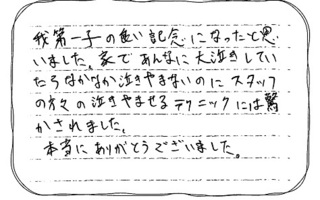 我第一子の良い記念になったと思
いました。家であんなに大泣きしてい
たらなかなか泣きやまないのにスタッフ
の方々の泣きやませるテクニックには驚
かされました。
本当にありがとうございました。